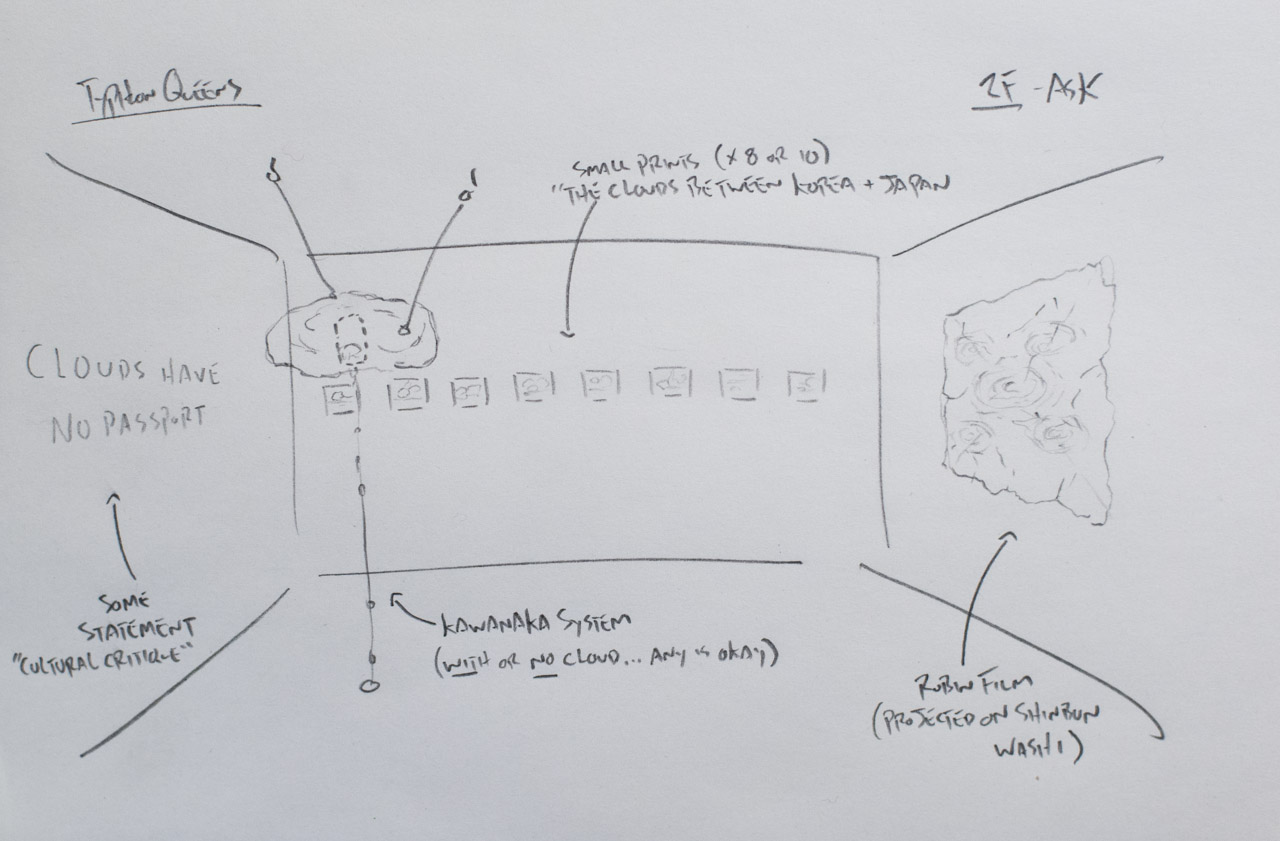 Typhon Queens
2F - ASK
SMALL PRINTS (x 8 OR 10)
"THE CLOUDS BETWEEN KOREA + JAPAN
CLOUDS HAVE
NO PASSPORT
SOME
STATEMENT
"CULTURAL CRITIQUE"
KAWANAKA SYSTEM
(WITH OR NO CLOUD... ANY IS OKAY)
ROBIN FILM
(PROJECTED ON SHINBUN
WASHI)